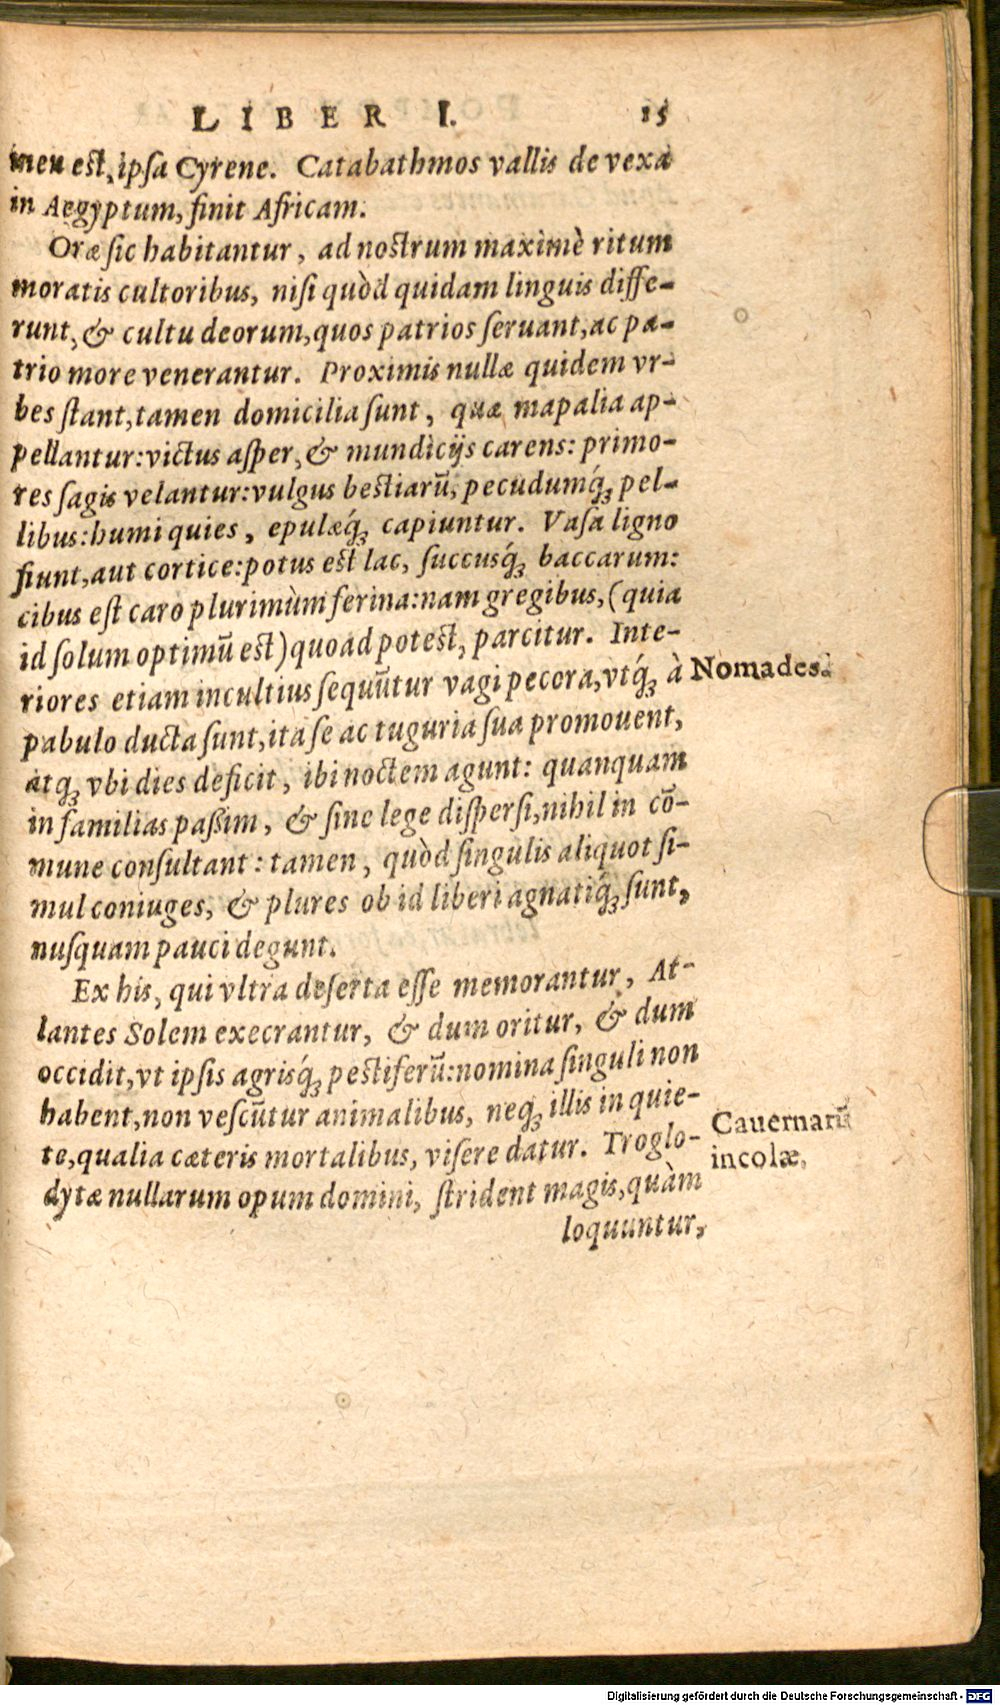 LIBER I. 15
men est, ipſa Cyrene. Catabathmos vallis devexa
in Aegyptum, finit Africam.
Oræ ſic habitantur, ad nostrum maximè ritum
moratis cultoribus, niſi quòd quidam linguis diffe-
runt, & cultu deorum, quos patrios ſeruant, ac pa-
trio more venerantur. Proximis nullæ quidem vr-
bes ſtant, tamen domicilia ſunt, quæ mapalia ap-
pellantur: victus aſper, & mundicijs carens: primo-
res ſagis velantur: vulgus bestiarũ, pecudumq́ꝫ pel-
libus: humi quies, epulæq́ꝫ capiuntur. Vaſa ligno
fiunt, aut cortice: potus est lac, ſuccusq́ꝫ baccarum:
cibus eſt caro plurimùm ferina: nam gregibus, (quia
id ſolum optimũ est) quoad potest, parcitur. Inte-
riores etiam incultius ſequũtur vagi pecora, vtq́ꝫ à
Nomades.
pabulo ducta ſunt, ita ſe ac tuguria ſua promouent,
atqꝫ vbi dies deficit, ibi noctem agunt: quanquam
in familias paßim, & ſine lege diſperſi, nihil in cõ-
mune conſultant: tamen, quòd ſingulis aliquot ſi-
mul coniuges, & plures ob id liberi agnatiq́ꝫ ſunt,
nuſquam pauci degunt.
Ex his, qui vltra deſerta eſſe memorantur, At-
lantes Solem execrantur, & dum oritur, & dum
occidit, vt ipſis agrisq́ꝫ pestiferũ: nomina ſinguli non
habent, non veſcũtur animalibus, neqꝫ illis in quie-
te, qualia cæteris mortalibus, viſere datur. Troglo-
Cauernarũ
incolæ,
dytæ nullarum opum domini, ſtrident magis, quàm
loquuntur,
Digitalisierung gefördert durch die Deutsche Forschungsgemeinschaft - DFG